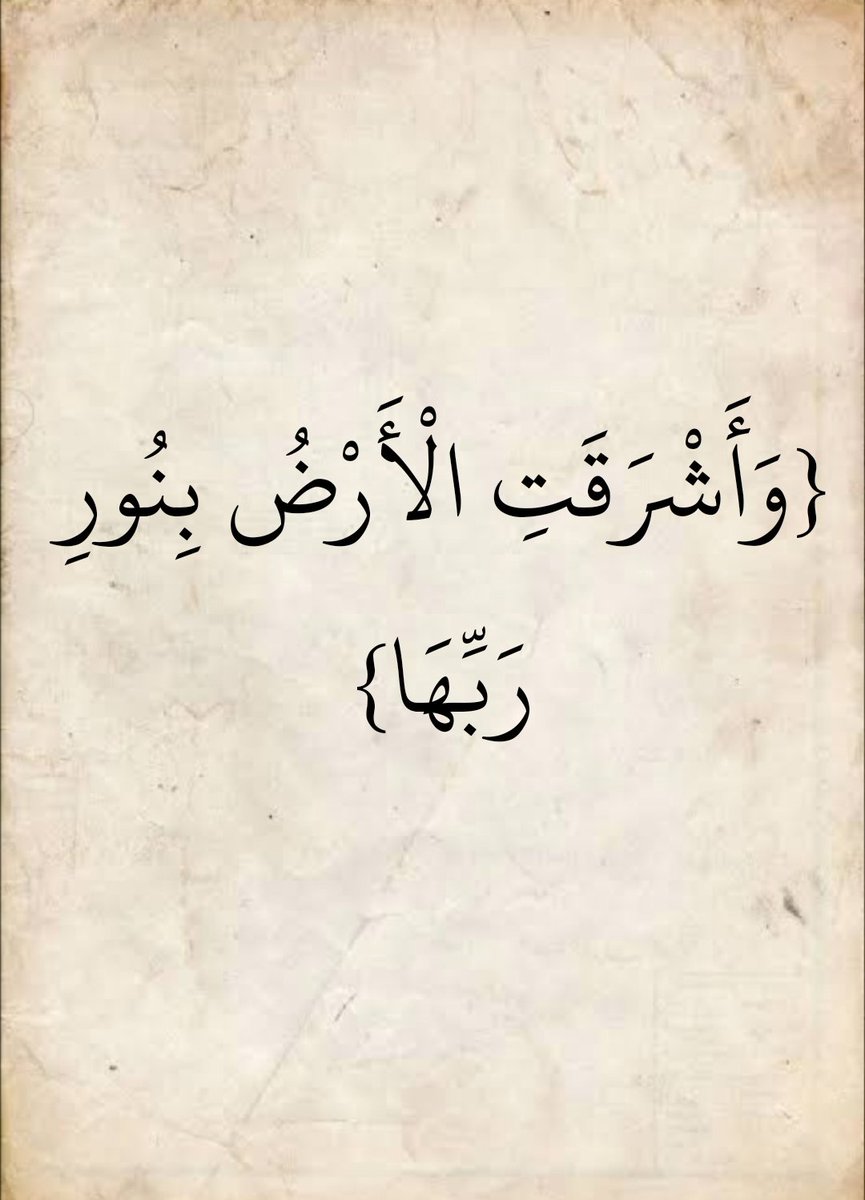 {وَأَشْرَقَتِ الْأَرْضُ بِنُورِ
رَبِّهَا}